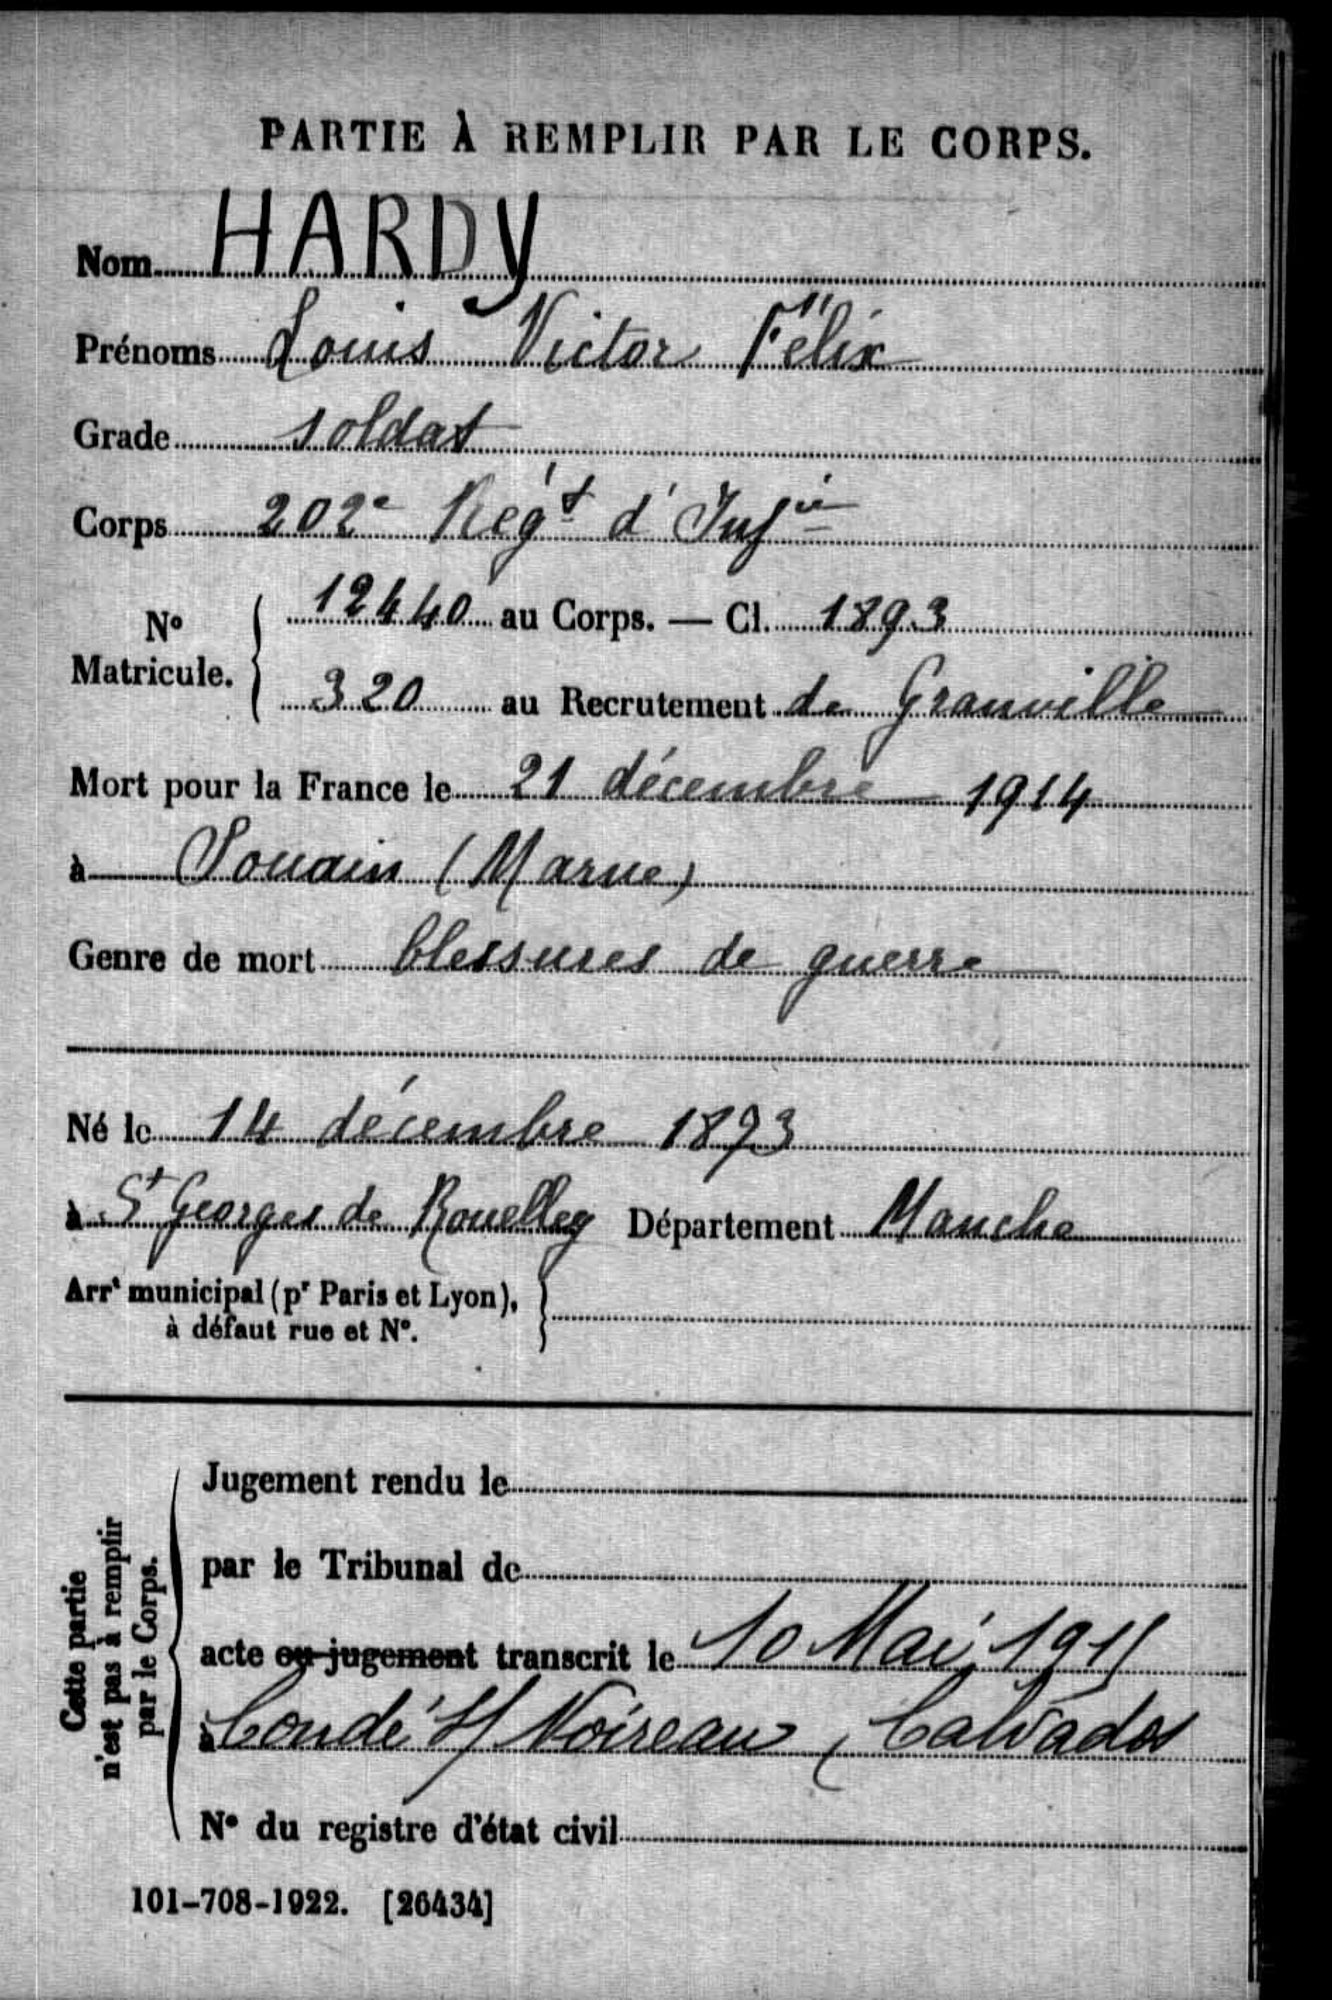 PARTIE À REMPLIR PAR LE CORPS.
Nom HARDY
Prénoms Louis Victor Félix
Grade soldat
Corps 202e Régt d'Infie
No Matricule. 12440 au Corps. — Cl. 1893
320 au Recrutement de Granville
Mort pour la France le 21 décembre 1914
à Souain (Marne)
Genre de mort blessures de guerre
Né le 14 décembre 1873
à St Georges de Rouelley Département Manche
Arrt municipal (pr Paris et Lyon),
à défaut rue et No.
Cette partie
n'est pas à remplir
par le Corps.
Jugement rendu le
par le Tribunal de
acte ou jugement transcrit le 10 Mai 1915
à Condé s/ Noireau, Calvados
No du registre d'état civil
101-708-1922. [26434]